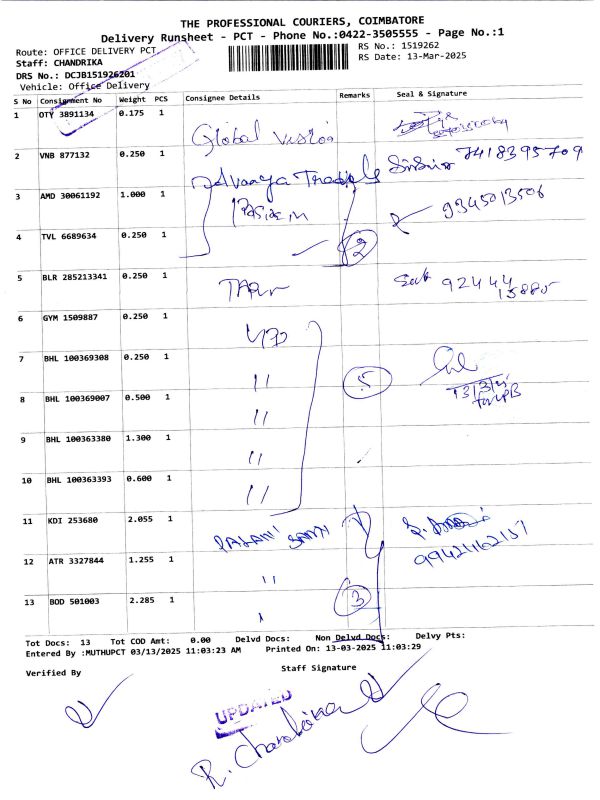 THE PROFESSIONAL COURIERS, COIMBATORE
Delivery Runsheet - PCT - Phone No.:0422-3505555 - Page No.:1
Route: OFFICE DELIVERY PCT
RS No.: 1519262
Staff: CHANDRIKA
RS Date: 13-Mar-2025
DRS No.: DCJB151926201
Vehicle: Office Delivery
S No Consignment No Weight PCS Consignee Details Remarks Seal & Signature
1 OTY 3891134 0.175 1 Global Vision
2 VNB 877132 0.250 1 7418395709
3 AMD 30061192 1.000 1 9345013506
4 TVL 6689634 0.250 1 2
5 BLR 285213341 0.250 1 92444 15885
6 GYM 1509887 0.250 1
7 BHL 100369308 0.250 1 " 5
8 BHL 100369007 0.500 1 " 13/3/25
9 BHL 100363380 1.300 1 "
10 BHL 100363393 0.600 1 "
11 KDI 253680 2.055 1
12 ATR 3327844 1.255 1 "
13 BOD 501003 2.285 1 3
Tot Docs: 13 Tot COD Amt: 0.00 Delvd Docs: Non Delvd Docs: Delvy Pts:
Entered By :MUTHUPCT 03/13/2025 11:03:23 AM Printed On: 13-03-2025 11:03:29
Verified By
Staff Signature
UPDATED